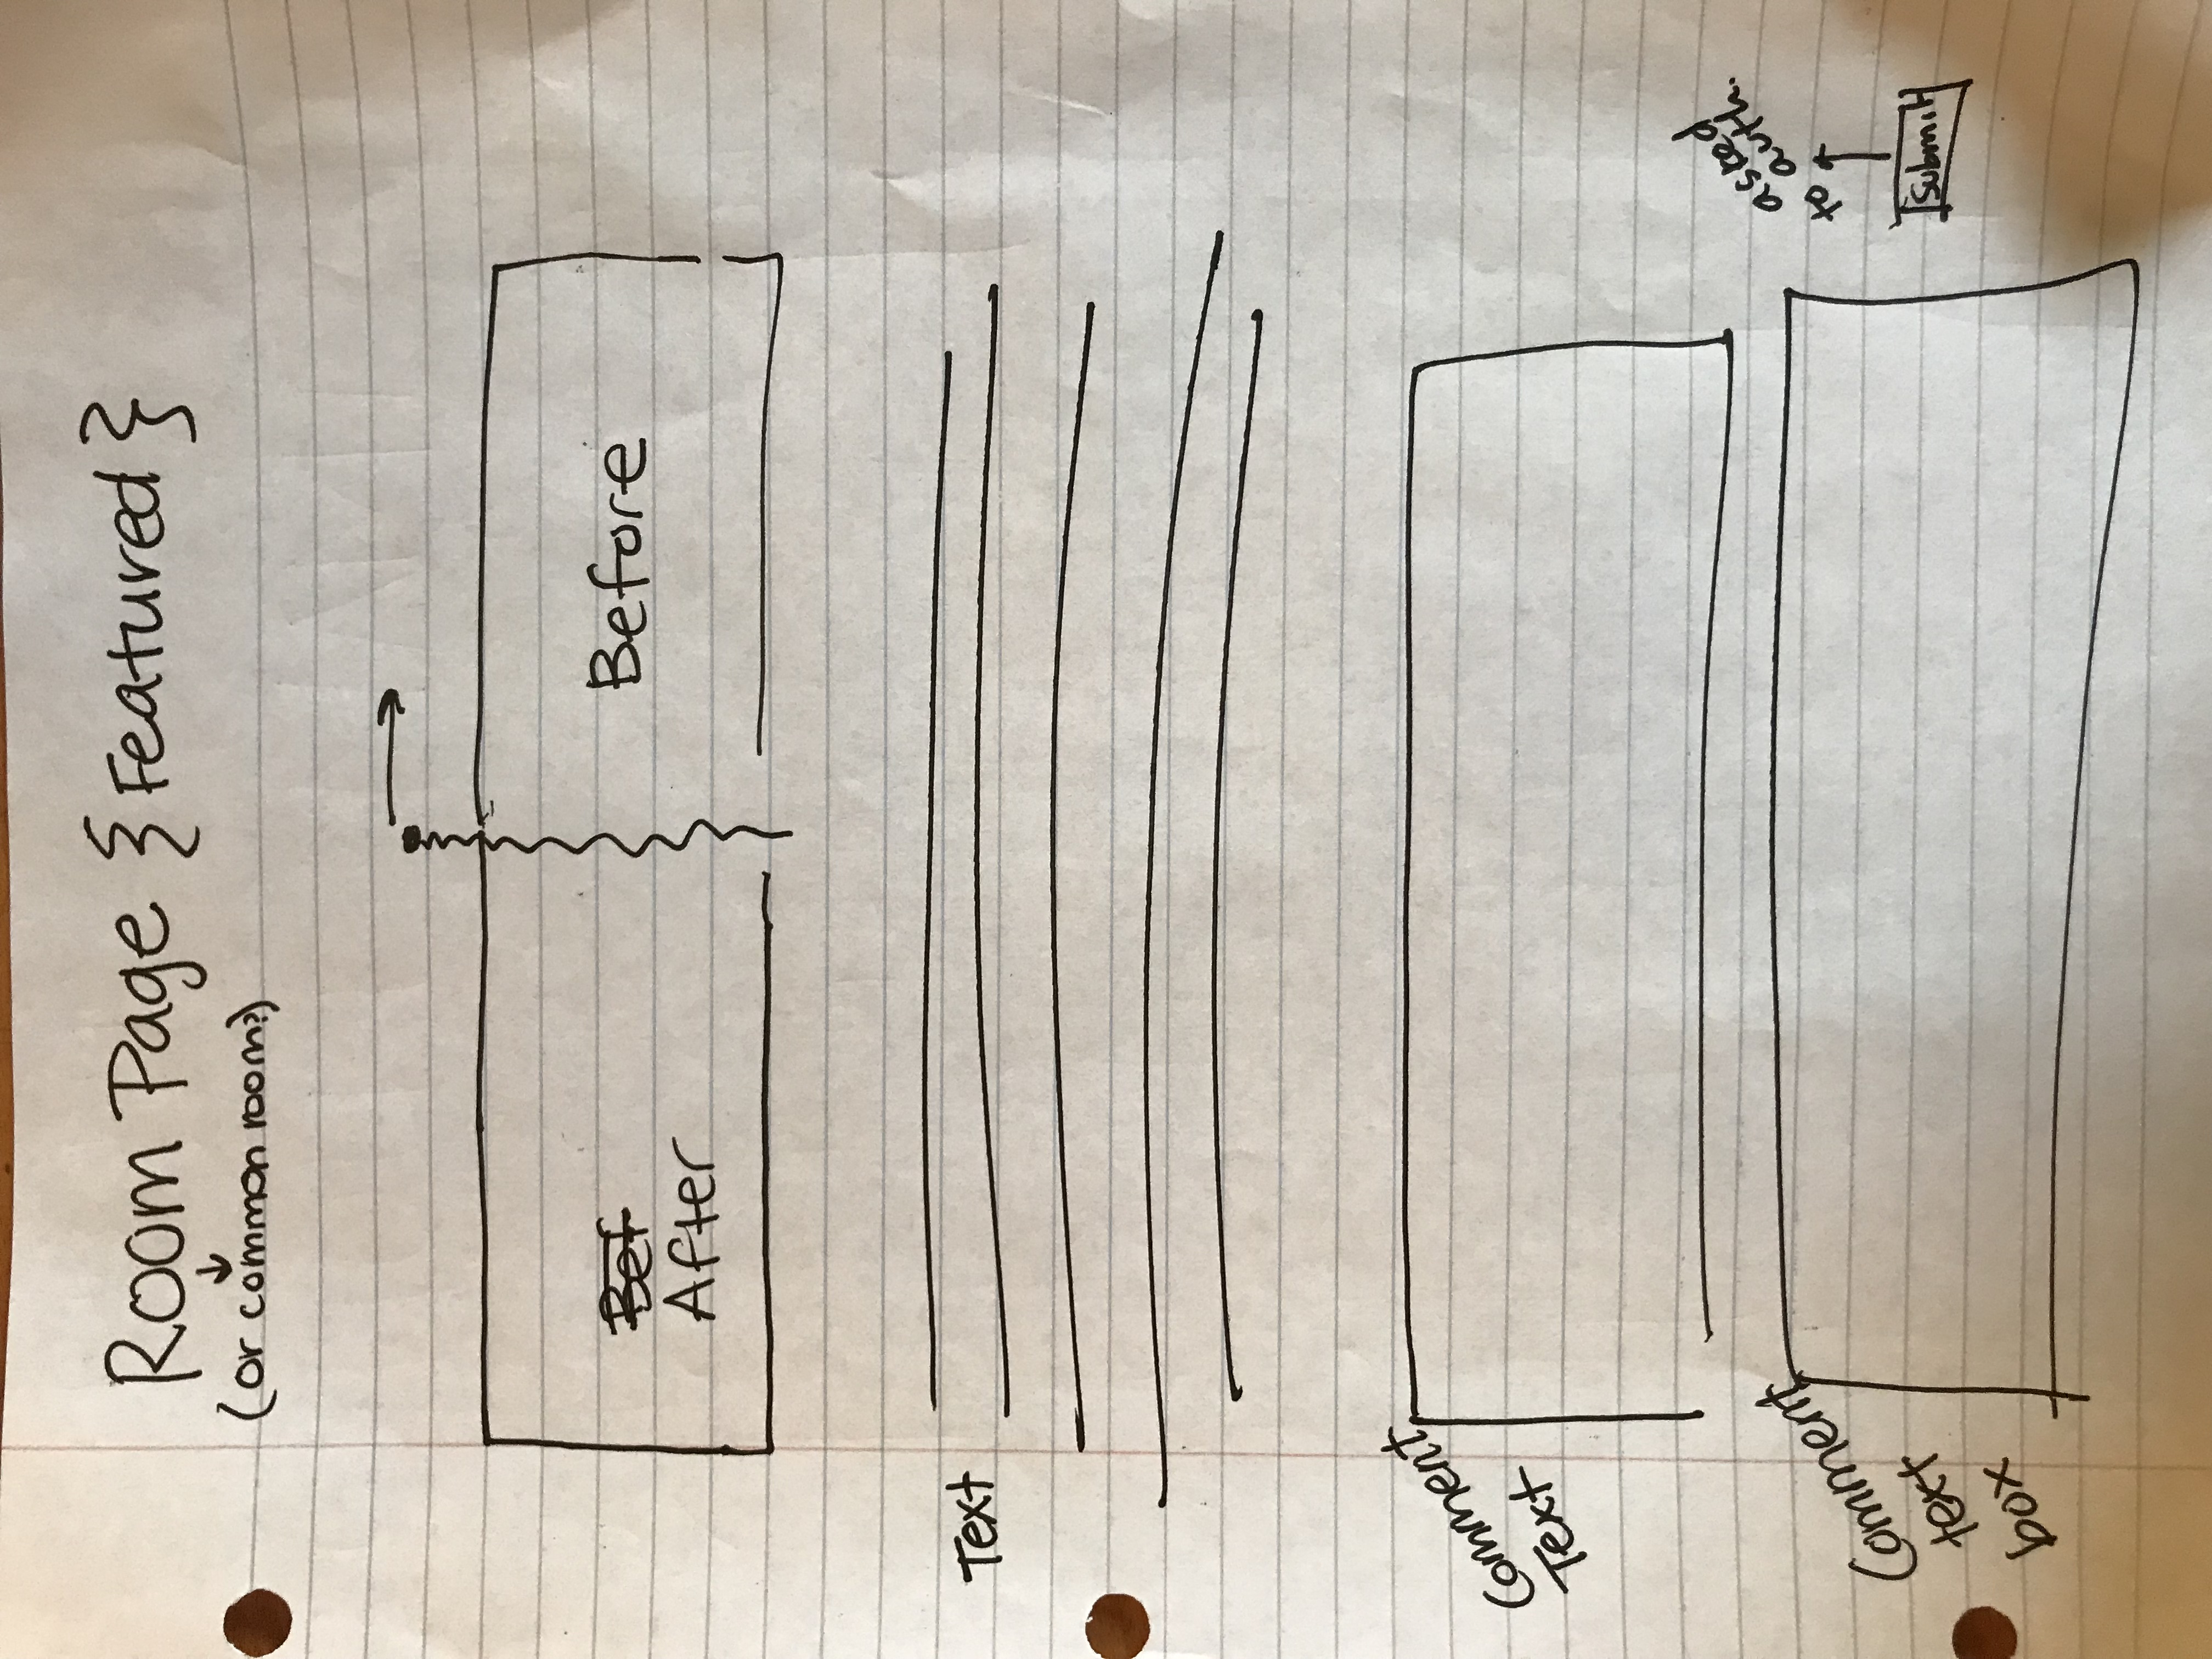 Room Page { Featured }
(or common room?)
Bef
After
Before
Text
Comment
Text
Comment
text
box
asked
to auth.
Submit